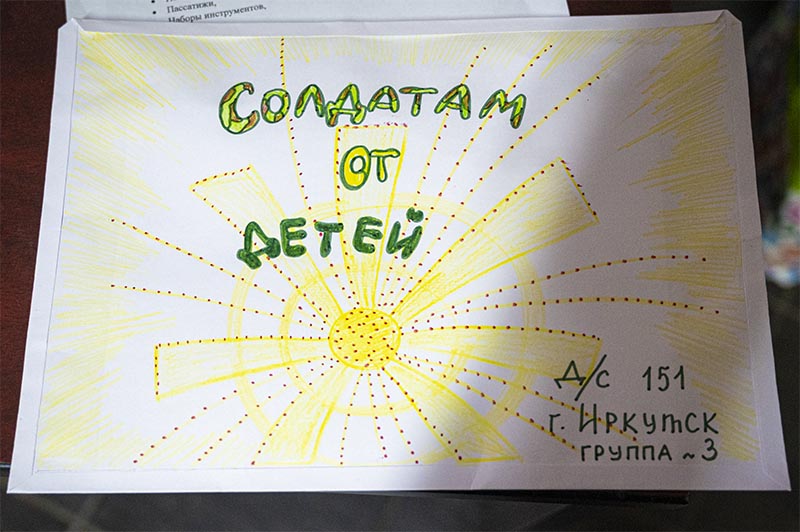 Пассатижи,
Наборы инструментов,
СОЛДАТАМ
ОТ
ДЕТЕЙ
Д/С 151
г. ИРКУТСК
ГРУППА ~3